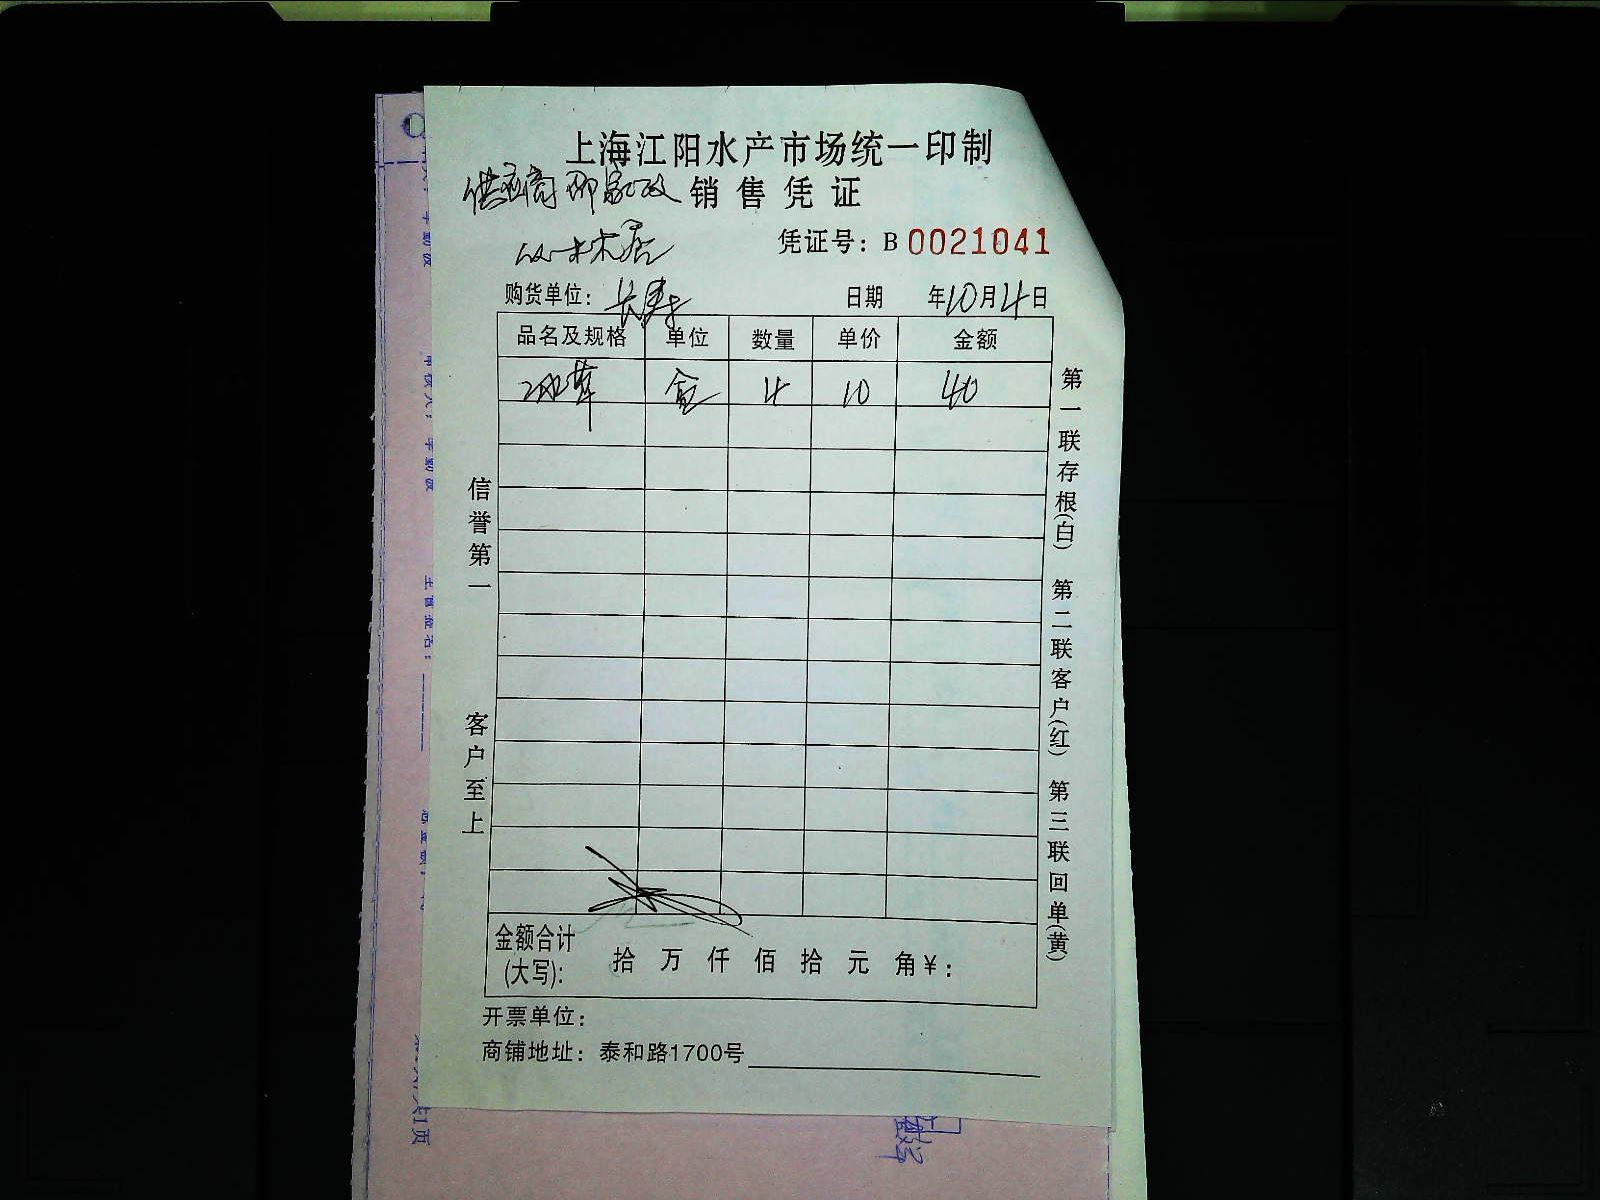 上海江阳水产市场统一印制
供应商
销售凭证
凭证号：B 0021041
购货单位：长寿
日期 年10月4日
品名及规格 单位 数量 单价 金额
盒 4 10 40
信誉第一
客户至上
第一联存根(白)
第二联客户(红)
第三联回单(黄)
金额合计
(大写)： 拾 万 仟 佰 拾 元 角 ¥：
开票单位：
商铺地址：泰和路1700号